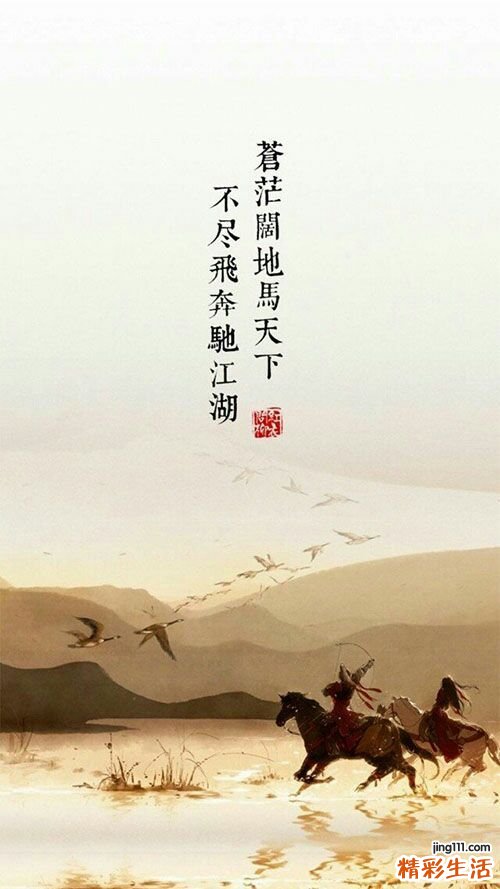 蒼茫闊地馬天下
不尽飛奔馳江湖
jing111.com
精彩生活